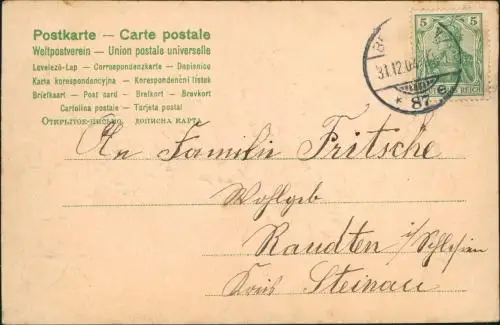 Postkarte — Carte postale
Weltpostverein — Union postale universelle
Levelező-Lap — Correspondenzkarte — Dopisnice
Karta korespondencyjna — Korespondenční lístek
Briefkaart — Post card — Brefkort — Brevkort
Cartolina postale — Tarjeta postal
ОТКРЫТОЕ-ПИСЬМО, ДОПИСНА КАРТА
5 5
REICH
31.12.04
* 87 e
An Familie Fritsche
Wohlgeb
Raudten i/Schlesien
Kreis Steinau